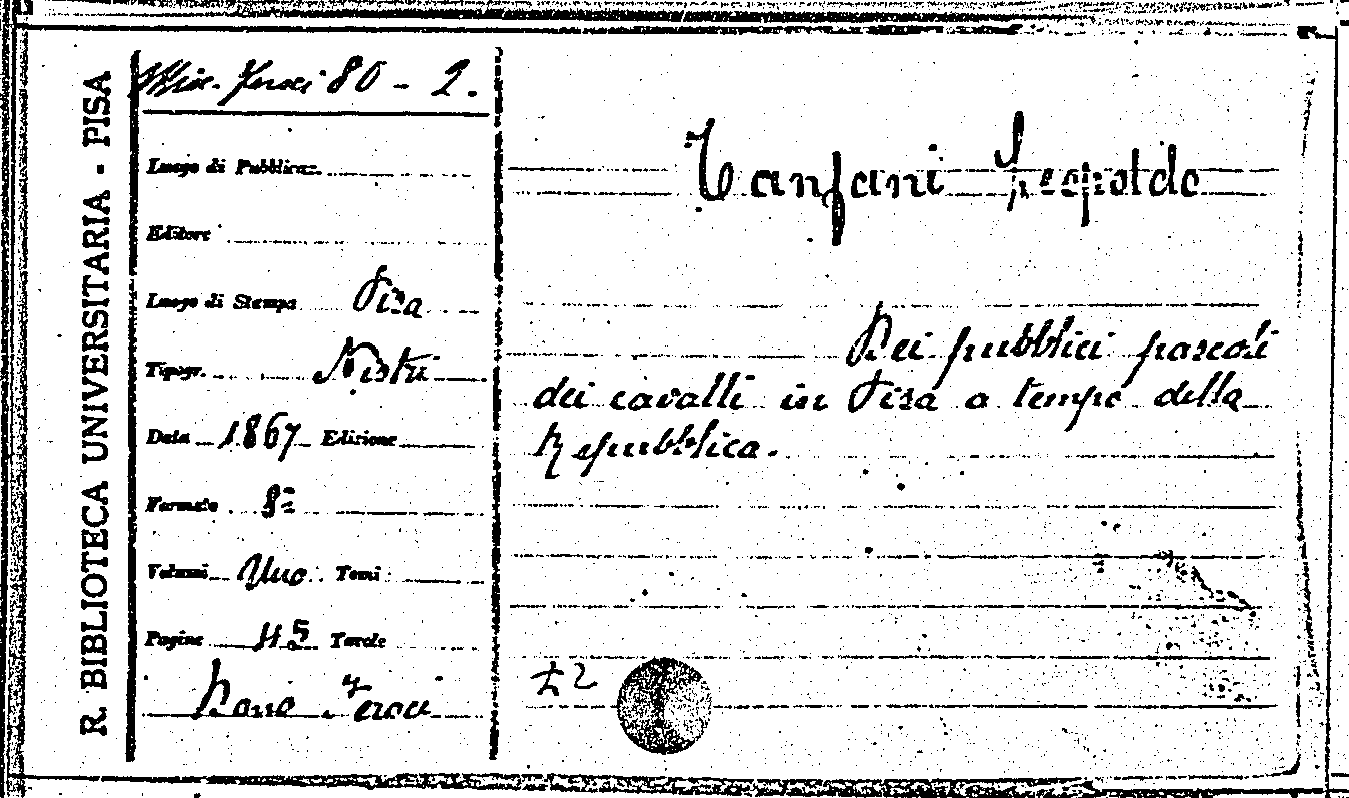 R. BIBLIOTECA UNIVERSITARIA - PISA
Misc. Feroci 80 - 2.
Luogo di Pubblicaz.
Editore
Luogo di Stampa Pisa
Tipogr. Nistri
Data 1867 Edizione
Formato 8º
Volumi Uno Tomi
Pagine 45 Tavole
Dono Feroci
Tanfani Leopoldo
Dei pubblici pascoli
dei cavalli in Pisa a tempo della
Repubblica.